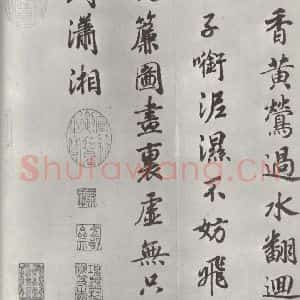 香黄鶯過水翻迴
子銜泥濕不妨飛
簾圖畫裏虛無只
瀟湘
Shufawang.CN